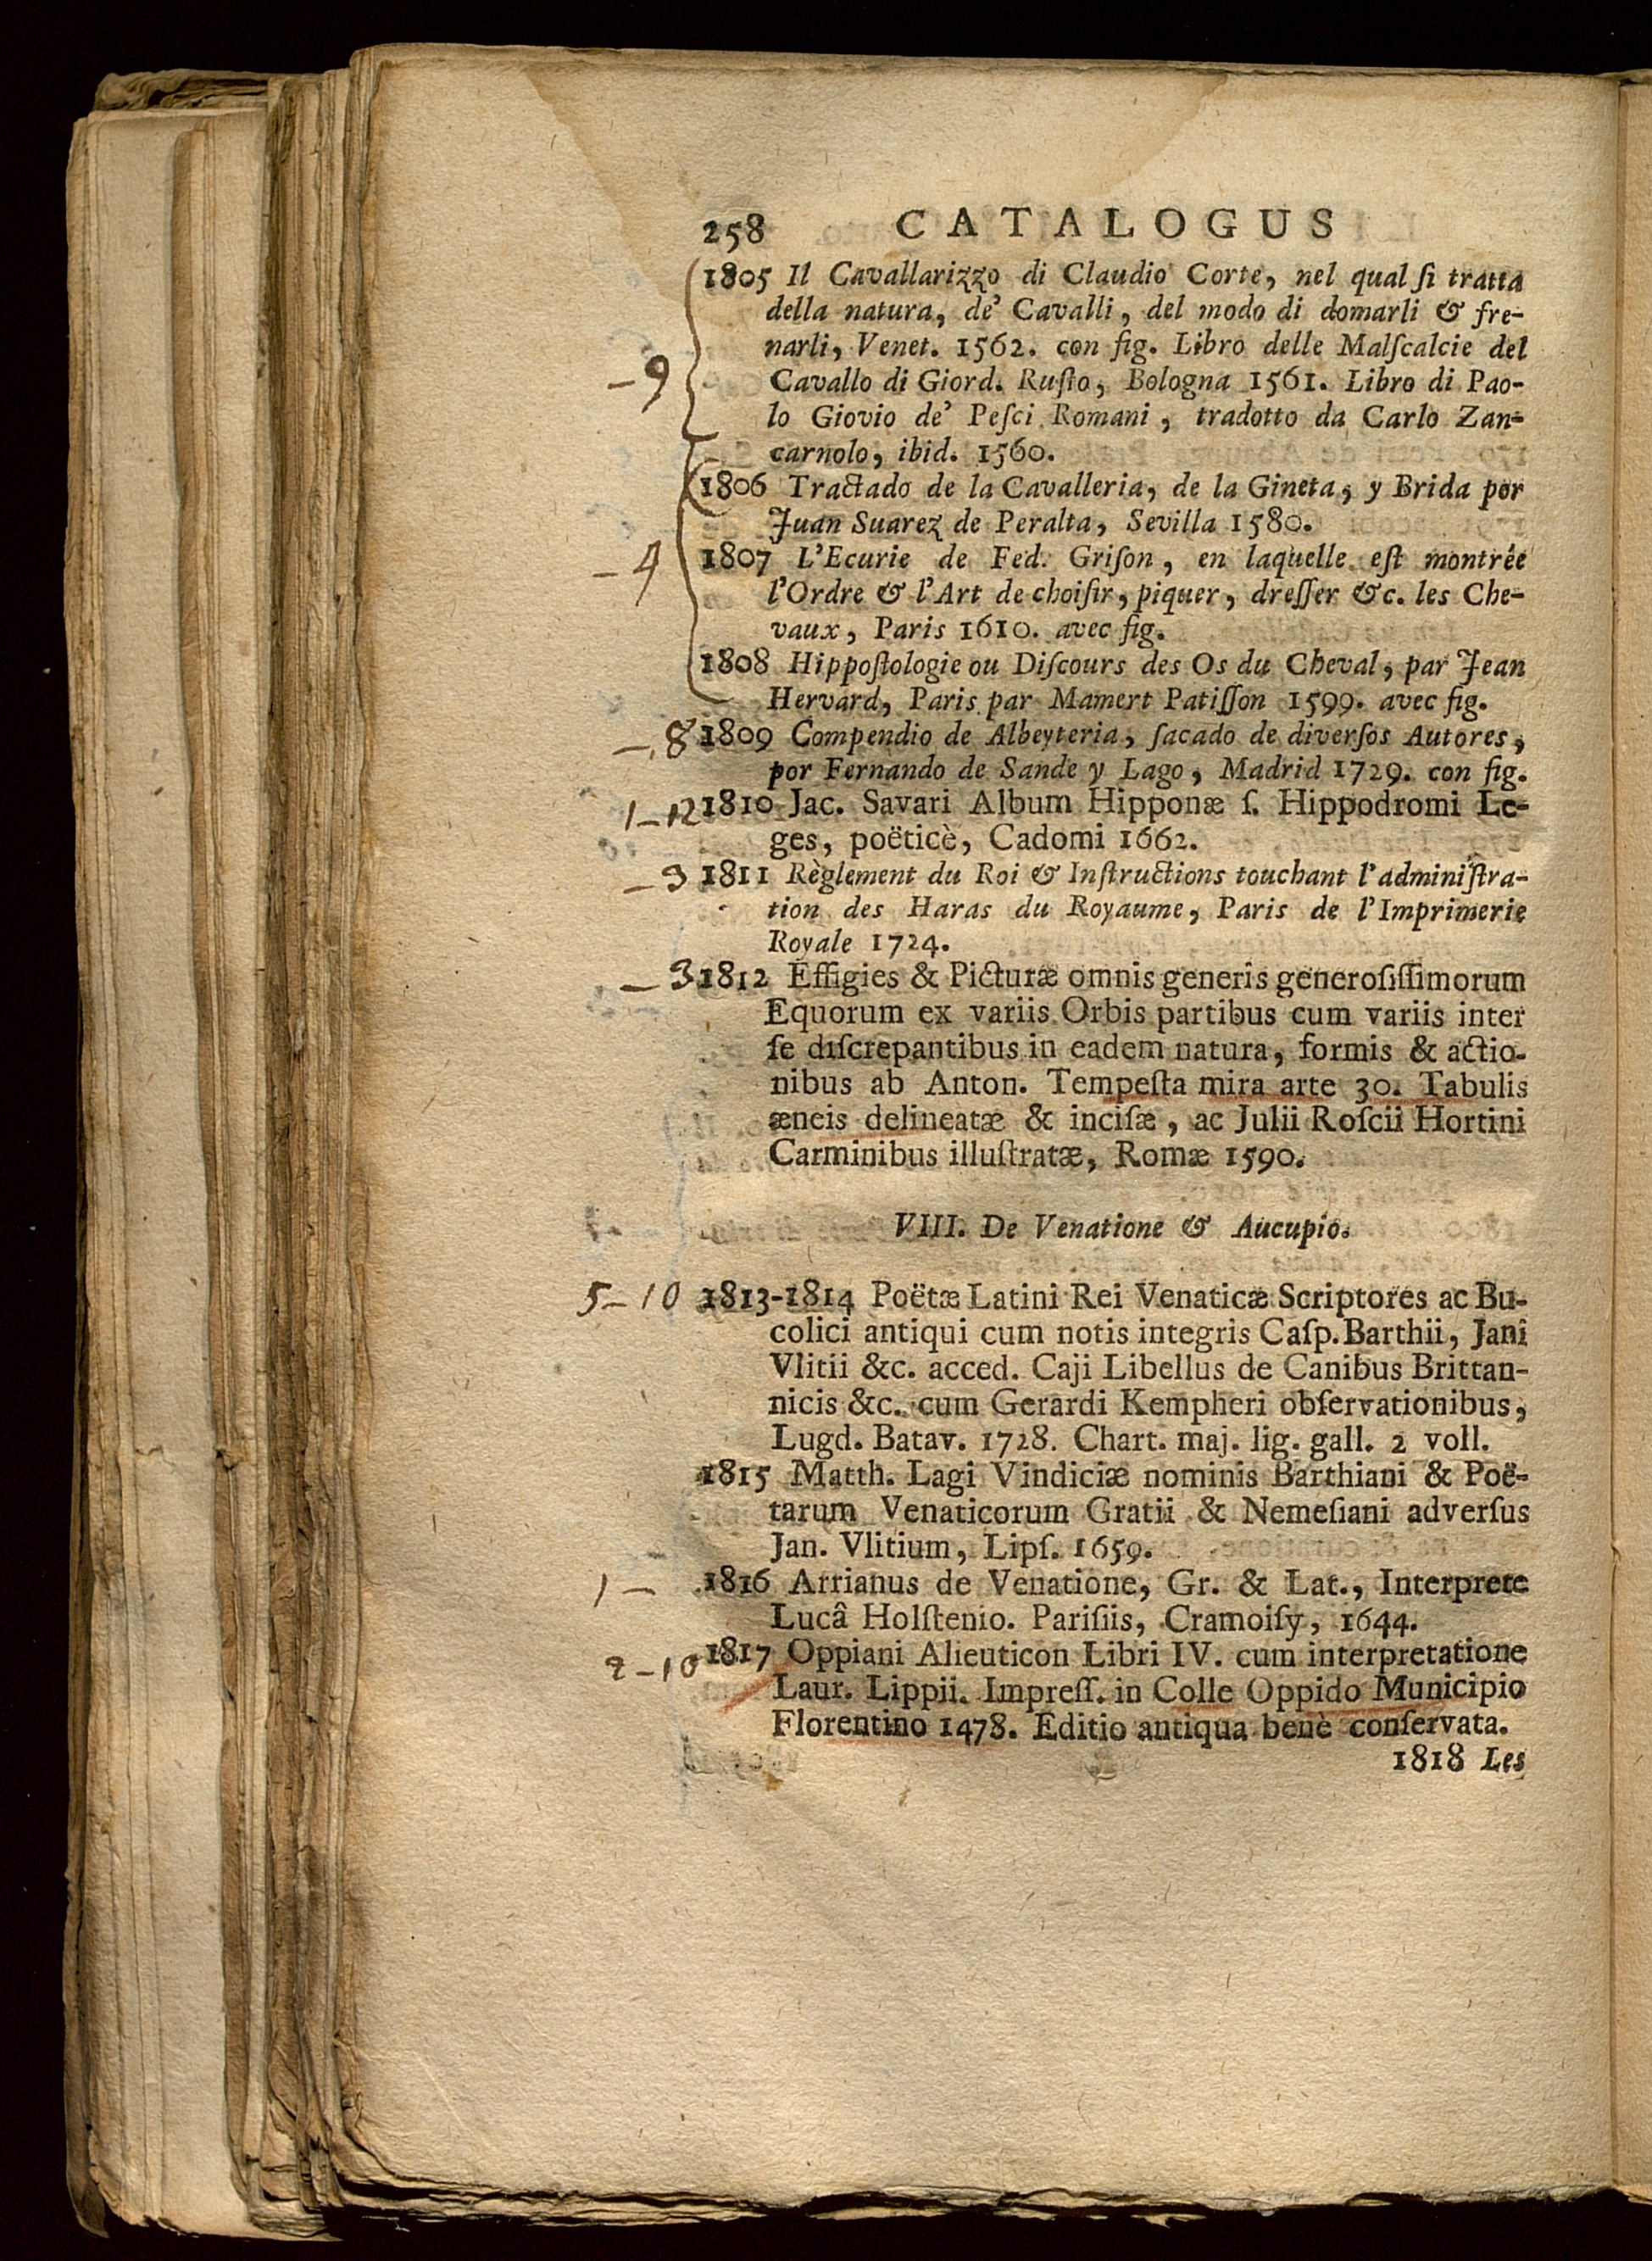 258 CATALOGUS
1805 Il Cavallarizzo di Claudio Corte, nel qual ſi tratta
della natura, de' Cavalli, del modo di domarli & fre-
narli, Venet. 1562. con fig. Libro delle Malſcalcie del
- 9 Cavallo di Giord. Ruſto, Bologna 1561. Libro di Pao-
lo Giovio de' Peſci Romani, tradotto da Carlo Zan-
carnolo, ibid. 1560.
1806 Tractado de la Cavalleria, de la Gineta, y Brida por
Juan Suarez de Peralta, Sevilla 1580.
- 4 1807 L'Ecurie de Fed. Griſon, en laquelle eſt montrée
l'Ordre & l'Art de choiſir, piquer, dreſſer &c. les Che-
vaux, Paris 1610. avec fig.
1808 Hippoſtologie ou Diſcours des Os du Cheval, par Jean
Hervard, Paris par Mamert Patiſſon 1599. avec fig.
- 8 1809 Compendio de Albeyteria, ſacado de diverſos Autores,
por Fernando de Sande y Lago, Madrid 1729. con fig.
1 - 12 1810 Jac. Savari Album Hipponæ ſ. Hippodromi Le-
ges, poëticè, Cadomi 1662.
- 3 1811 Règlement du Roi & Inſtructions touchant l'adminiſtra-
tion des Haras du Royaume, Paris de l'Imprimerie
Royale 1724.
- 3 1812 Effigies & Picturæ omnis generis generoſiſſimorum
Equorum ex variis Orbis partibus cum variis inter
ſe diſcrepantibus in eadem natura, formis & actio-
nibus ab Anton. Tempeſta mira arte 30. Tabulis
æneis delineatæ & inciſæ, ac Julii Roſcii Hortini
Carminibus illuſtratæ, Romæ 1590.
VIII. De Venatione & Aucupio.
5 - 10 1813-1814 Poëtæ Latini Rei Venaticæ Scriptores ac Bu-
colici antiqui cum notis integris Caſp. Barthii, Jani
Vlitii &c. acced. Caji Libellus de Canibus Brittan-
nicis &c. cum Gerardi Kempheri obſervationibus,
Lugd. Batav. 1728. Chart. maj. lig. gall. 2 voll.
1815 Matth. Lagi Vindiciæ nominis Barthiani & Poë-
tarum Venaticorum Gratii & Nemeſiani adverſus
Jan. Vlitium, Lipſ. 1659.
1 - 1816 Arrianus de Venatione, Gr. & Lat., Interprete
Lucâ Holſtenio. Pariſiis, Cramoiſy, 1644.
2 - 10 1817 Oppiani Alieuticon Libri IV. cum interpretatione
Laur. Lippii. Impreſſ. in Colle Oppido Municipio
Florentino 1478. Editio antiqua benè conſervata.
1818 Les